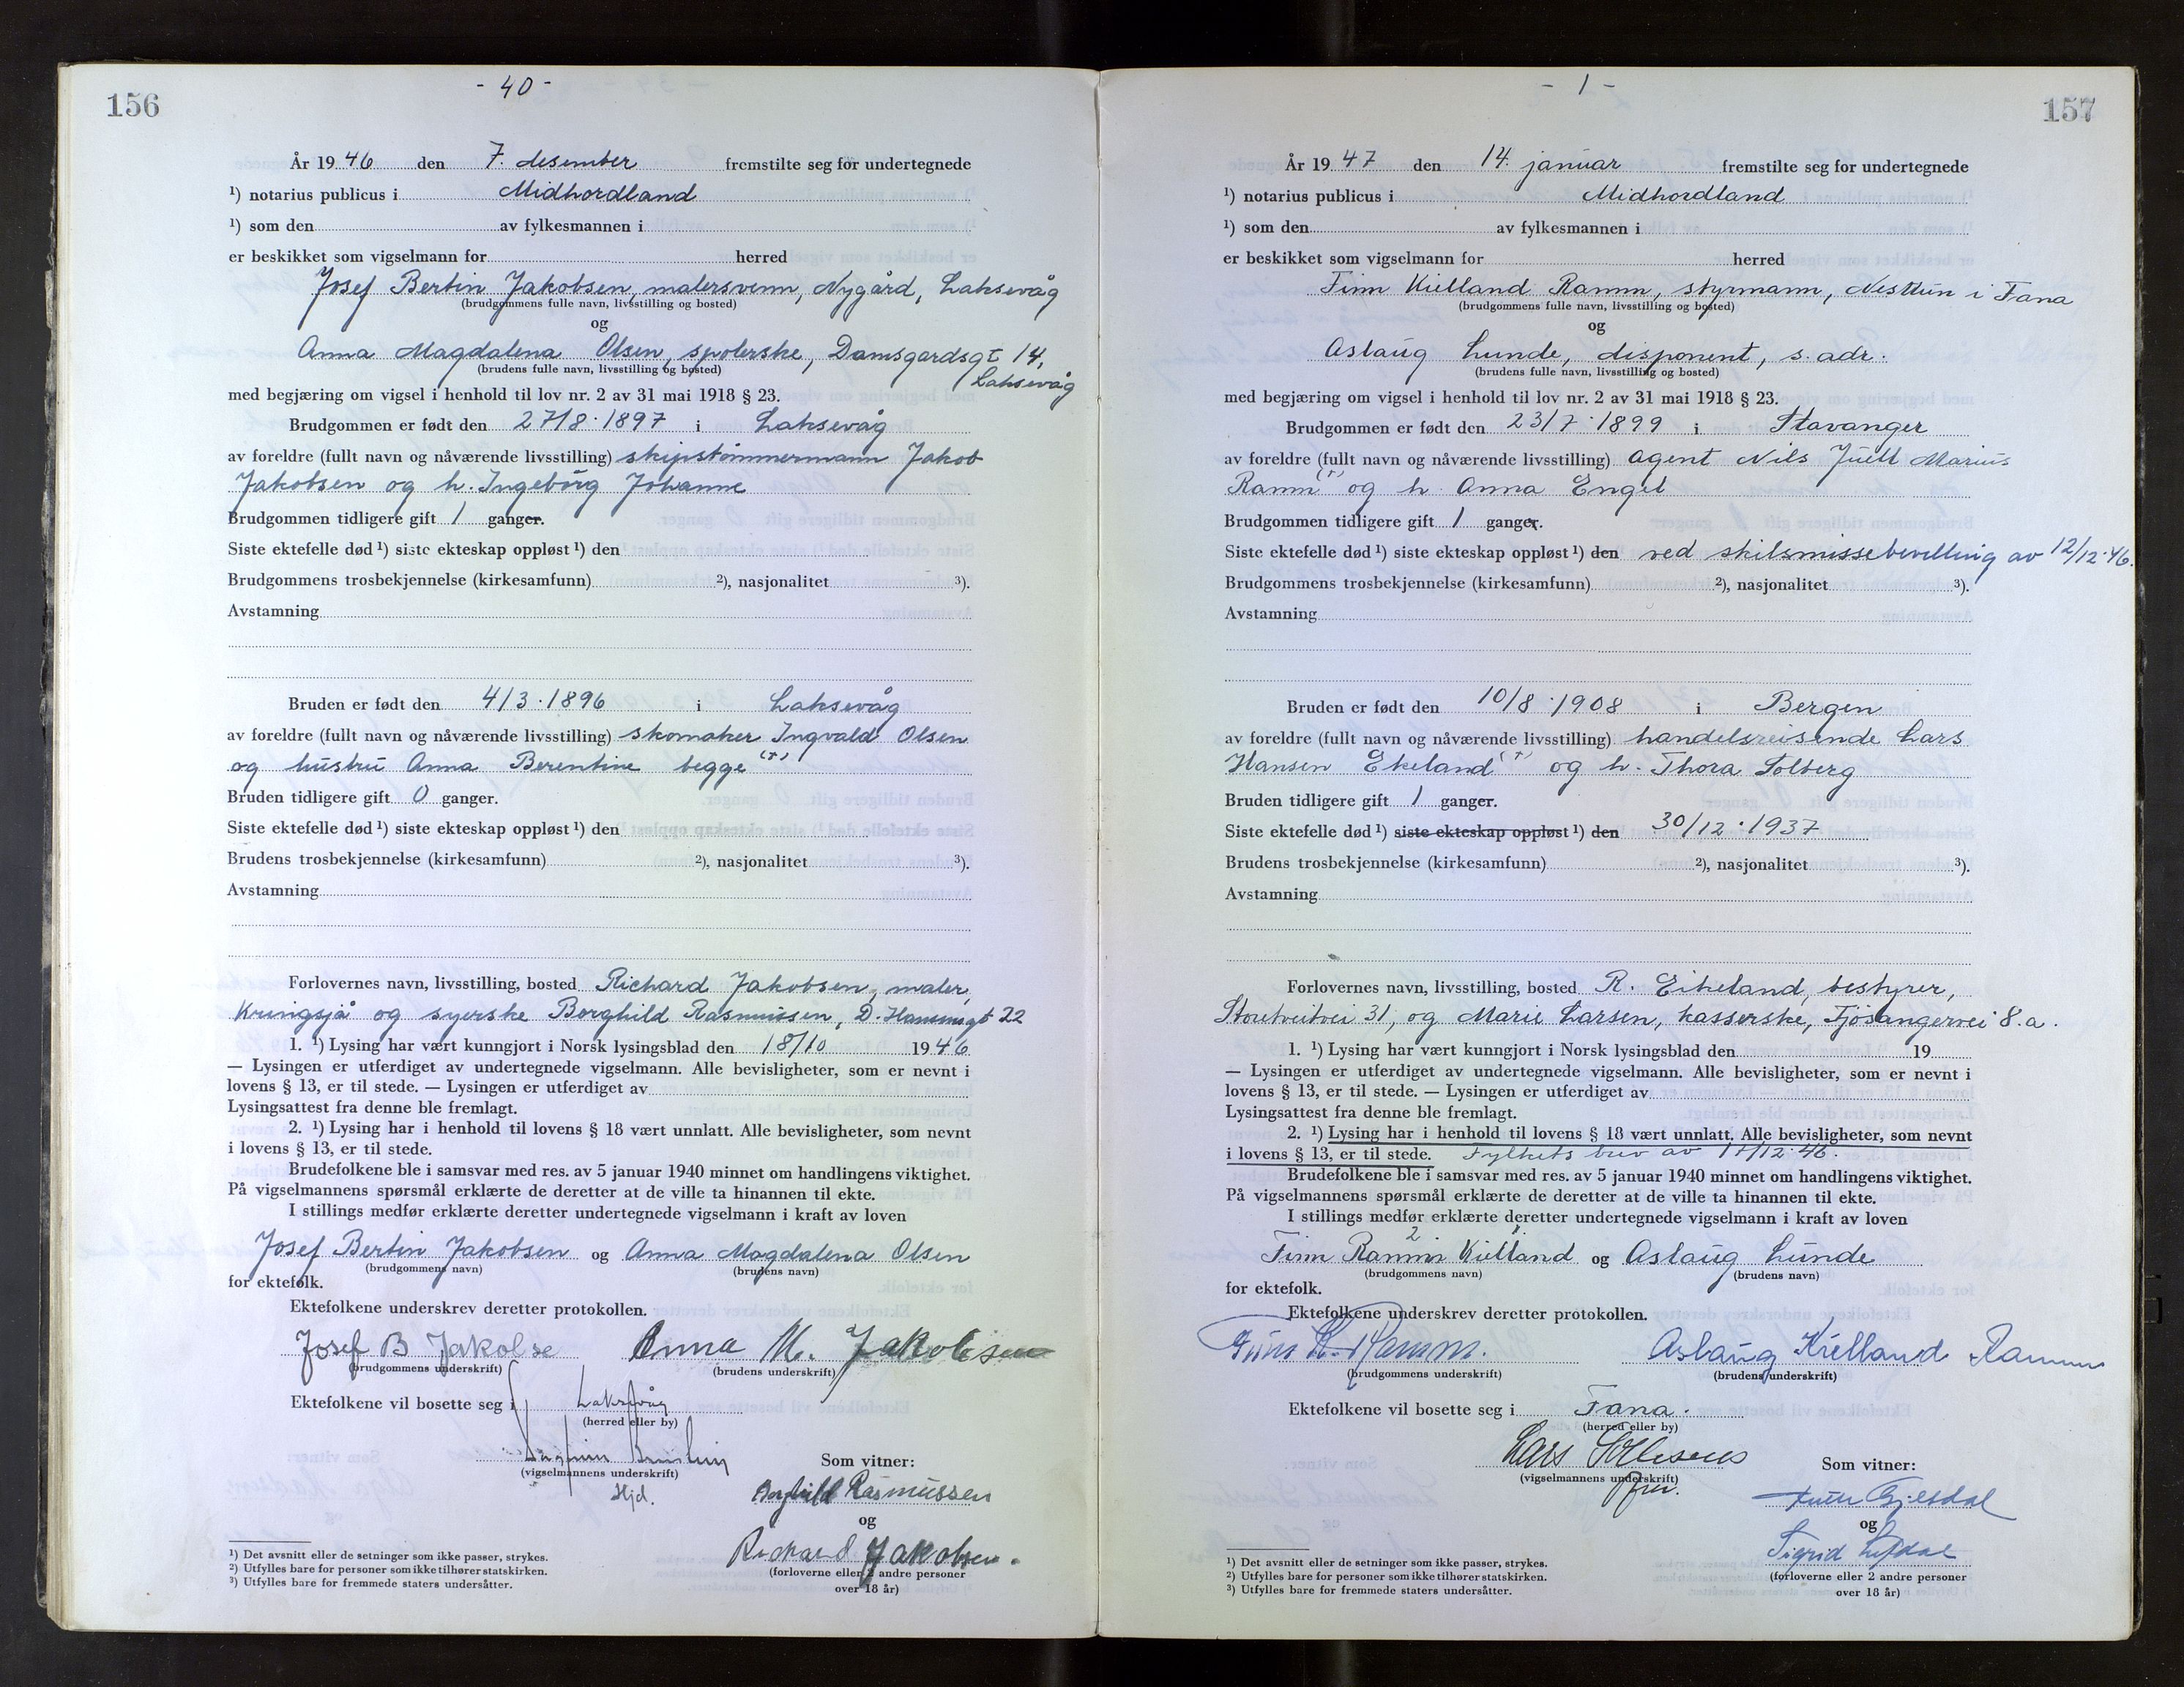 156
- 40 -
År 1946 den 7. desember fremstilte seg for undertegnede
¹) notarius publicus i Midhordland
¹) som den av fylkesmannen i
er beskikket som vigselmann for herred
Josef Bertin Jakobsen, malersvenn, Nygård, Laksevåg
(brudgommens fulle navn, livsstilling og bosted)
og
Anna Magdalena Olsen, spolerske, Damsgardsgt 14,
(brudens fulle navn, livsstilling og bosted)
Laksevåg
med begjæring om vigsel i henhold til lov nr. 2 av 31 mai 1918 § 23.
Brudgommen er født den 27/8.1897 i Laksevåg
av foreldre (fullt navn og nåværende livsstilling) skipstømmermann Jakob
Jakobsen og h. Ingeborg Johanne
Brudgommen tidligere gift 1 ganger.
Siste ektefelle død¹) siste ekteskap oppløst¹) den
Brudgommens trosbekjennelse (kirkesamfunn) ²), nasjonalitet ³).
Avstamning
Bruden er født den 4/3.1896 i Laksevåg
av foreldre (fullt navn og nåværende livsstilling) skomaker Ingvald Olsen
og hustru Anna Berentine begge (+)
Bruden tidligere gift 0 ganger.
Siste ektefelle død¹) siste ekteskap oppløst¹) den
Brudens trosbekjennelse (kirkesamfunn) ²), nasjonalitet ³).
Avstamning
Forlovernes navn, livsstilling, bosted Richard Jakobsen, maler,
Kringsjå og syerske Borghild Rasmussen, D. 22
1. ¹) Lysing har vært kunngjort i Norsk lysingsblad den 18/10 1946
— Lysingen er utferdiget av undertegnede vigselmann. Alle bevisligheter, som er nevnt i
lovens § 13, er til stede. — Lysingen er utferdiget av
Lysingsattest fra denne ble fremlagt.
2. ¹) Lysing har i henhold til lovens § 18 vært unnlatt. Alle bevisligheter, som nevnt
i lovens § 13, er til stede.
Brudefolkene ble i samsvar med res. av 5 januar 1940 minnet om handlingens viktighet.
På vigselmannens spørsmål erklærte de deretter at de ville ta hinannen til ekte.
I stillings medfør erklærte deretter undertegnede vigselmann i kraft av loven
Josef Bertin Jakobsen og Anna Magdalena Olsen
(brudgommens navn) (brudens navn)
for ektefolk.
Ektefolkene underskrev deretter protokollen.
Josef B Jakobse Anna M. Jakobsen
(brudgommens underskrift) (brudens underskrift)
Ektefolkene vil bosette seg i Laksevåg
(herred eller by)
(vigselmannens underskrift)
Hjd.
Som vitner:
Borghild Rasmussen
og
Richard Jakobsen.
(forloverne eller 2 andre personer
over 18 år)
¹) Det avsnitt eller de setninger som ikke passer, strykes.
²) Utfylles bare for personer som ikke tilhører statskirken.
³) Utfylles bare for fremmede staters undersåtter.
157
- 1 -
År 1947 den 14. januar fremstilte seg for undertegnede
¹) notarius publicus i Midhordland
¹) som den av fylkesmannen i
er beskikket som vigselmann for herred
Finn Kielland Ramm, styrmann, Nesttun i Fana
(brudgommens fulle navn, livsstilling og bosted)
og
Aslaug Lunde, disponent, s. adr.
(brudens fulle navn, livsstilling og bosted)
med begjæring om vigsel i henhold til lov nr. 2 av 31 mai 1918 § 23.
Brudgommen er født den 23/7.1899 i Stavanger
av foreldre (fullt navn og nåværende livsstilling) agent Nils Juell Marius
Ramm (+) og h. Anna Engel
Brudgommen tidligere gift 1 ganger.
Siste ektefelle død¹) siste ekteskap oppløst¹) den ved skilsmissebevilling av 12/12.46.
Brudgommens trosbekjennelse (kirkesamfunn) ²), nasjonalitet ³).
Avstamning
Bruden er født den 10/8.1908 i Bergen
av foreldre (fullt navn og nåværende livsstilling) handelsreisende Lars
Hansen Ekeland (+) og h. Thora Solberg
Bruden tidligere gift 1 ganger.
Siste ektefelle død¹) siste ekteskap oppløst¹) den 30/12.1937
Brudens trosbekjennelse (kirkesamfunn) ²), nasjonalitet ³).
Avstamning
Forlovernes navn, livsstilling, bosted R. Eikeland, bestyrer,
Storetveitvei 31, og Marie Larsen, kasserske, Fjøsangervei 8.a.
1. ¹) Lysing har vært kunngjort i Norsk lysingsblad den 19
— Lysingen er utferdiget av undertegnede vigselmann. Alle bevisligheter, som er nevnt i
lovens § 13, er til stede. — Lysingen er utferdiget av
Lysingsattest fra denne ble fremlagt.
2. ¹) Lysing har i henhold til lovens § 18 vært unnlatt. Alle bevisligheter, som nevnt
i lovens § 13, er til stede. Fylkets brev av 17/12.46.
Brudefolkene ble i samsvar med res. av 5 januar 1940 minnet om handlingens viktighet.
På vigselmannens spørsmål erklærte de deretter at de ville ta hinannen til ekte.
I stillings medfør erklærte deretter undertegnede vigselmann i kraft av loven
2 1
Finn Ramm Kielland og Aslaug Lunde
(brudgommens navn) (brudens navn)
for ektefolk.
Ektefolkene underskrev deretter protokollen.
Finn K. Ramm. Aslaug Kielland Ramm
(brudgommens underskrift) (brudens underskrift)
Ektefolkene vil bosette seg i Fana.
(herred eller by)
Lars
(vigselmannens underskrift)
Som vitner:
Gjesdal
og
Sigrid
(forloverne eller 2 andre personer
over 18 år)
¹) Det avsnitt eller de setninger som ikke passer, strykes.
²) Utfylles bare for personer som ikke tilhører statskirken.
³) Utfylles bare for fremmede staters undersåtter.